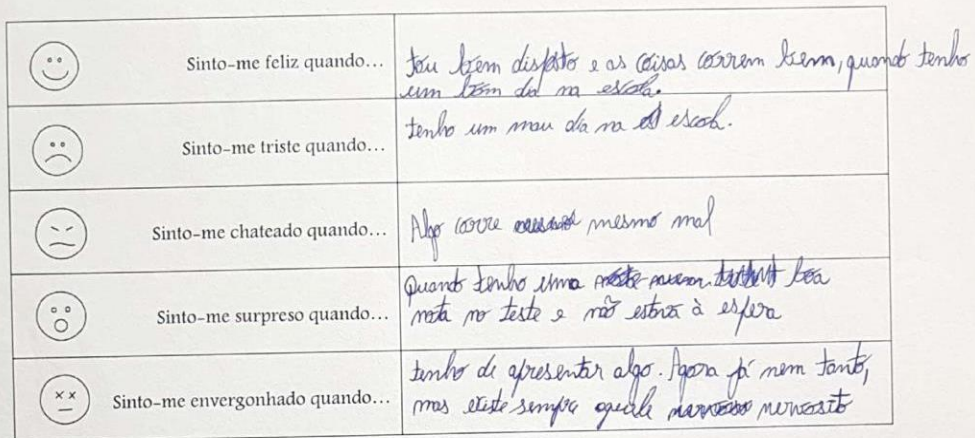 Sinto-me feliz quando...
tou bem disposto e as coisas correm bem, quando tenho
um bom dia na escola.
Sinto-me triste quando...
tenho um mau dia na escola.
Sinto-me chateado quando...
Algo corre mesmo mal
Sinto-me surpreso quando...
Quando tenho uma boa
nota no teste e não estava à espera
Sinto-me envergonhado quando...
tenho de apresentar algo. Agora já nem tanto,
mas existe sempre aquele nervosito